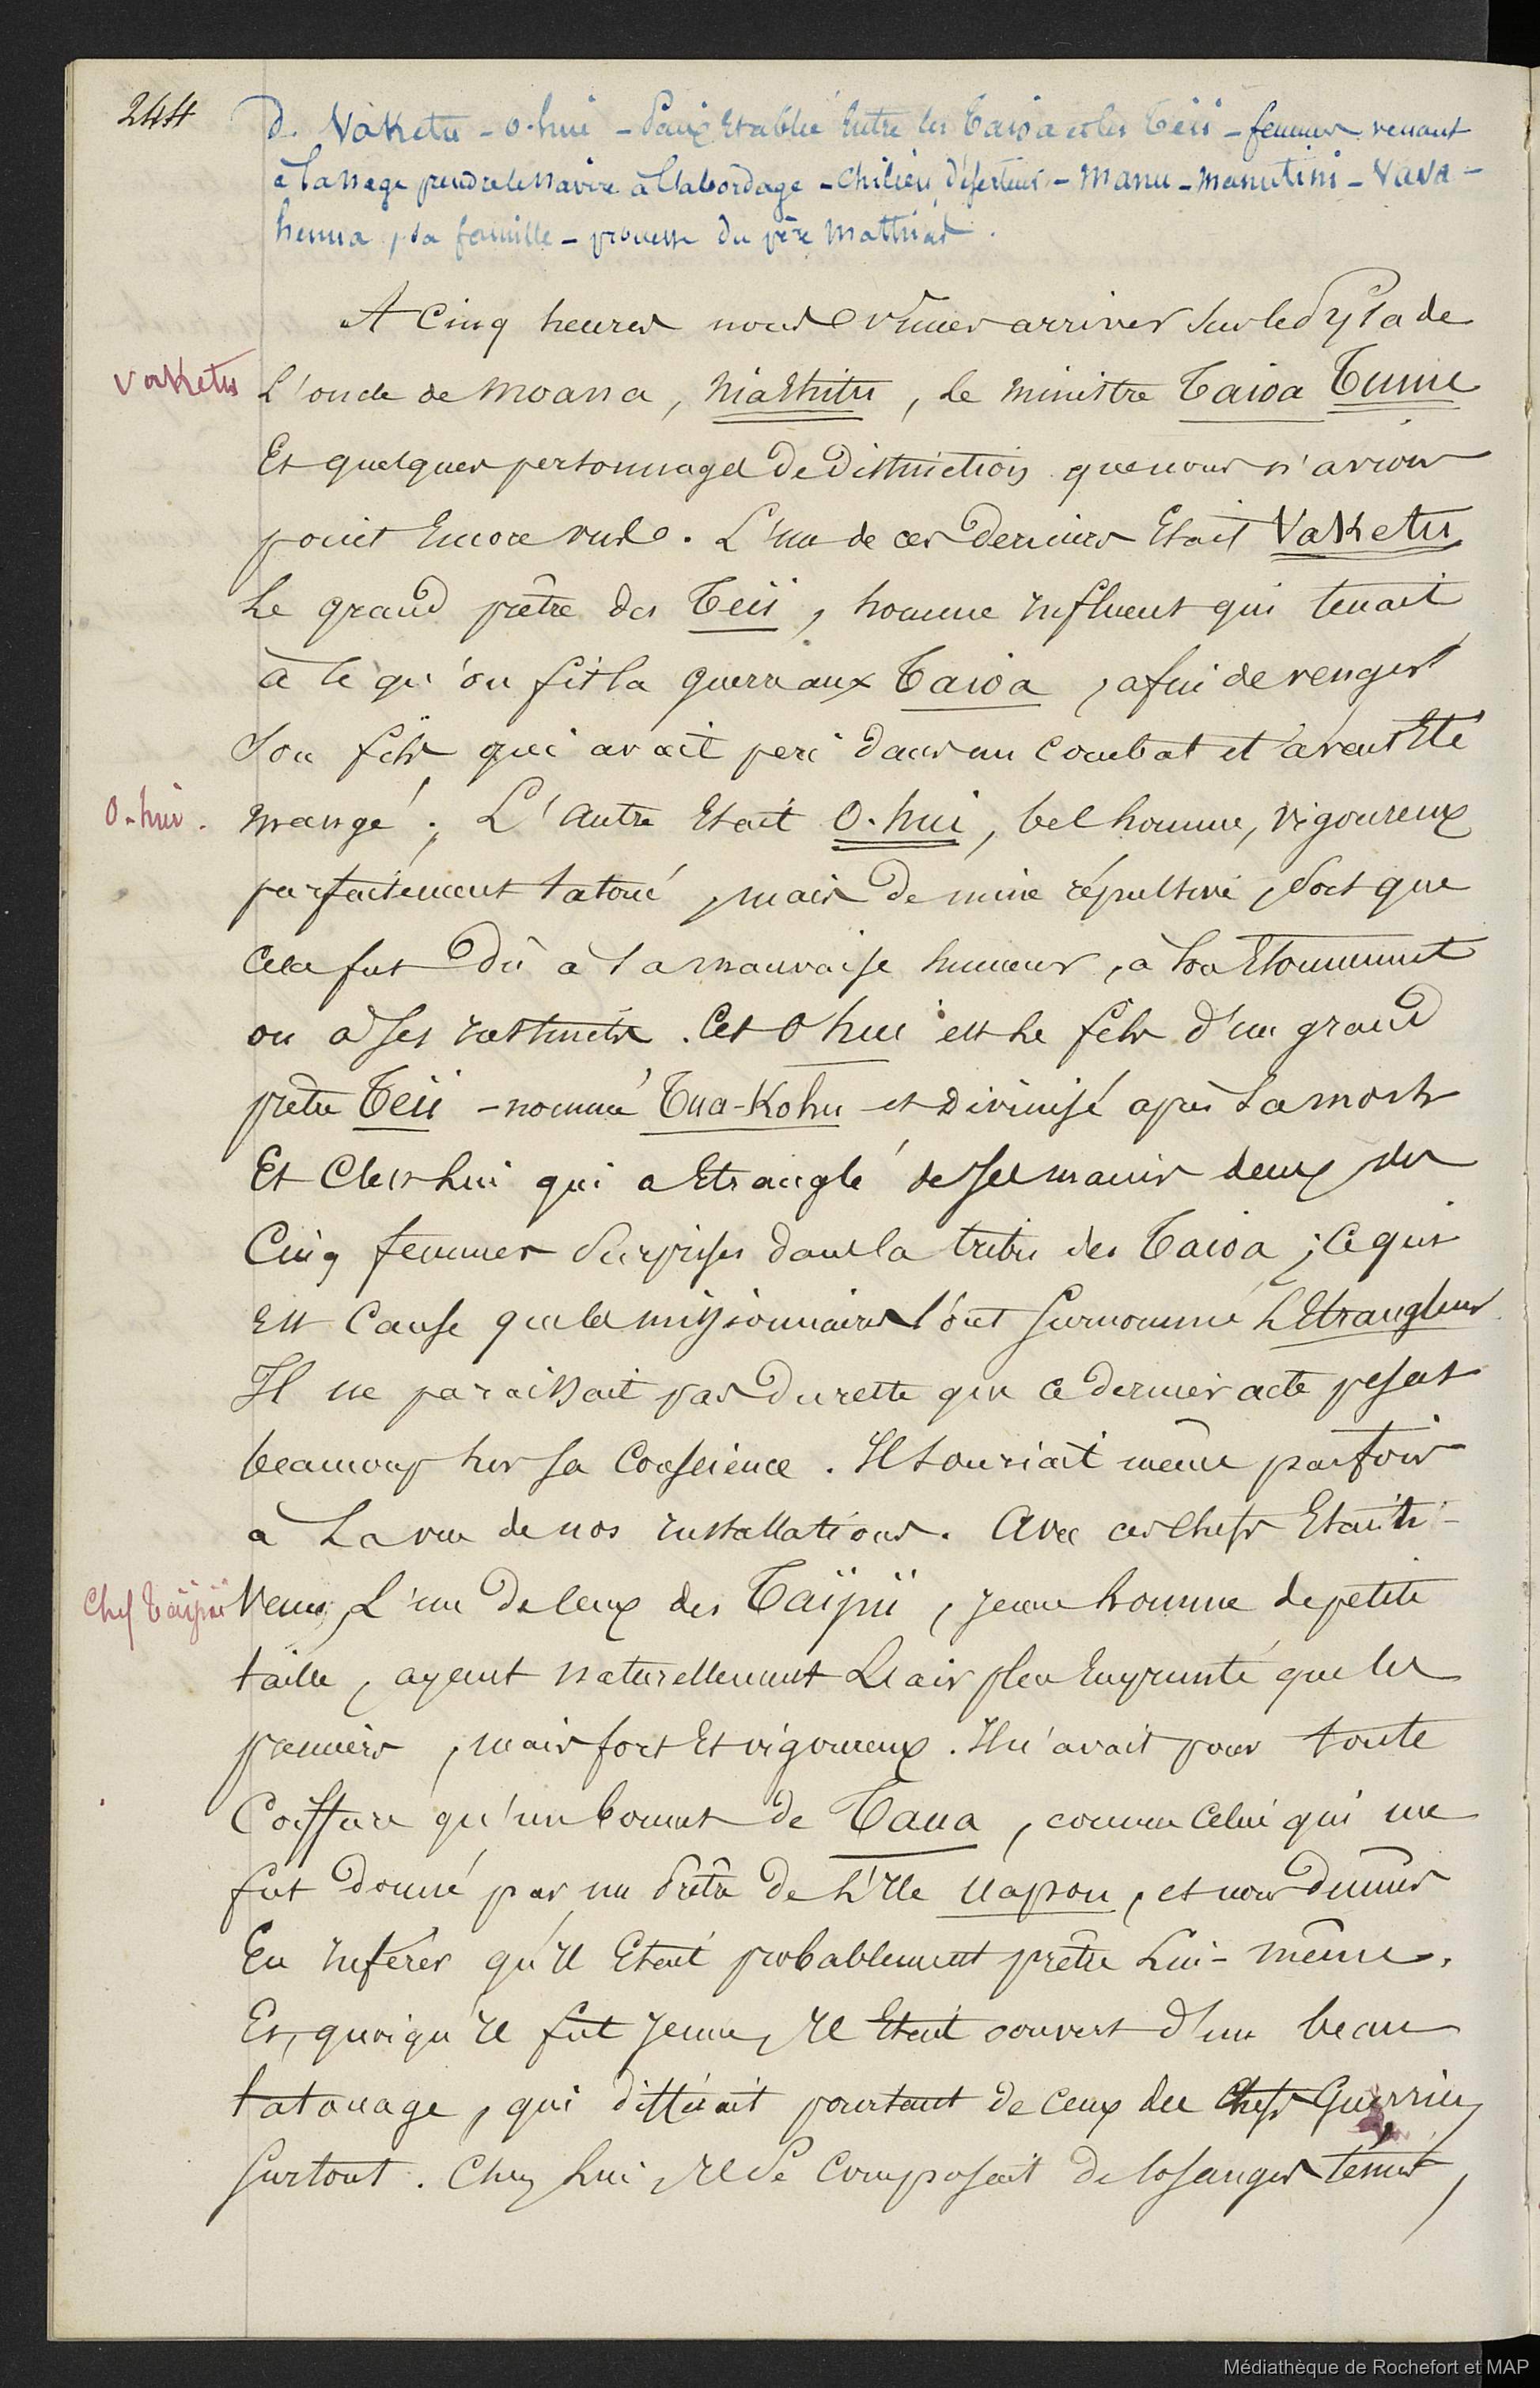 244
D. Vaketu - O-hui - Paix Etablie Entre les Taioa et les Teïi - femmes venant
à la nage prendre le navire à l'abordage - Chilien, déserteur - Manu - Manutini - Vava-
henua, sa famille - prouesse du père Mathias.
A Cinq heures nous vîmes arriver sur le Pylade
Vaketu
L'oncle de Moana, Niahitu, le ministre Taioa Tume
Et quelques personnages de Distinction que nous n'avions
point Encore vus. L'un de ces Derniers Etait Vaketu
Le grand prêtre des Teïi, homme influent qui tenait
à ce qu'on fit la guerre aux Taioa, afin de venger
Son fils qui avait peri dans un Combat et avait Eté
O-hui.
mangé; L'autre Etait O-hui, bel homme, vigoureux
parfaitement tatoué, mais De mine répulsive, soit que
Cela fut Dû à sa mauvaise humeur, à son Etonnement
ou à ses instincts. Cet O hui est le fils d'un grand
prêtre Teïi - nommé Tua-Kohu et Divinisé après sa mort
Et C'est lui qui a Etranglé de ses mains deux des
Cinq femmes Surprises dans la tribu des Taioa; Ce qui
Est Cause que les missionnaires l'ont surnommé L'Etrangleur.
Il ne paraissait pas Du reste que ce dernier acte pesat
beaucoup sur sa Conscience. Il souriait même parfois
à La vue de nos installations. Avec ces Chefs Etait
Chef Taïpii
Venu, L'un De Ceux des Taïpii, jeune homme de petite
taille, ayant naturellement L'air plus Emprunté que les
premiers, mais fort Et vigoureux. Il n'avait pour toute
Coiffure qu'un bonnet de Taua, comme Celui qui me
fut Donné par un Prêtre De L'Ile Uapou, et nous Dûmes
En inférer qu'il Etait probablement prêtre Lui-même.
Et, quoiqu'il fût jeune, il Etait couvert d'un beau
tatouage, qui différait pourtant de Ceux des Chefs Guerriers
Surtout. Chez Lui, il se Composait De losanges tenus,
Médiathèque de Rochefort et MAP